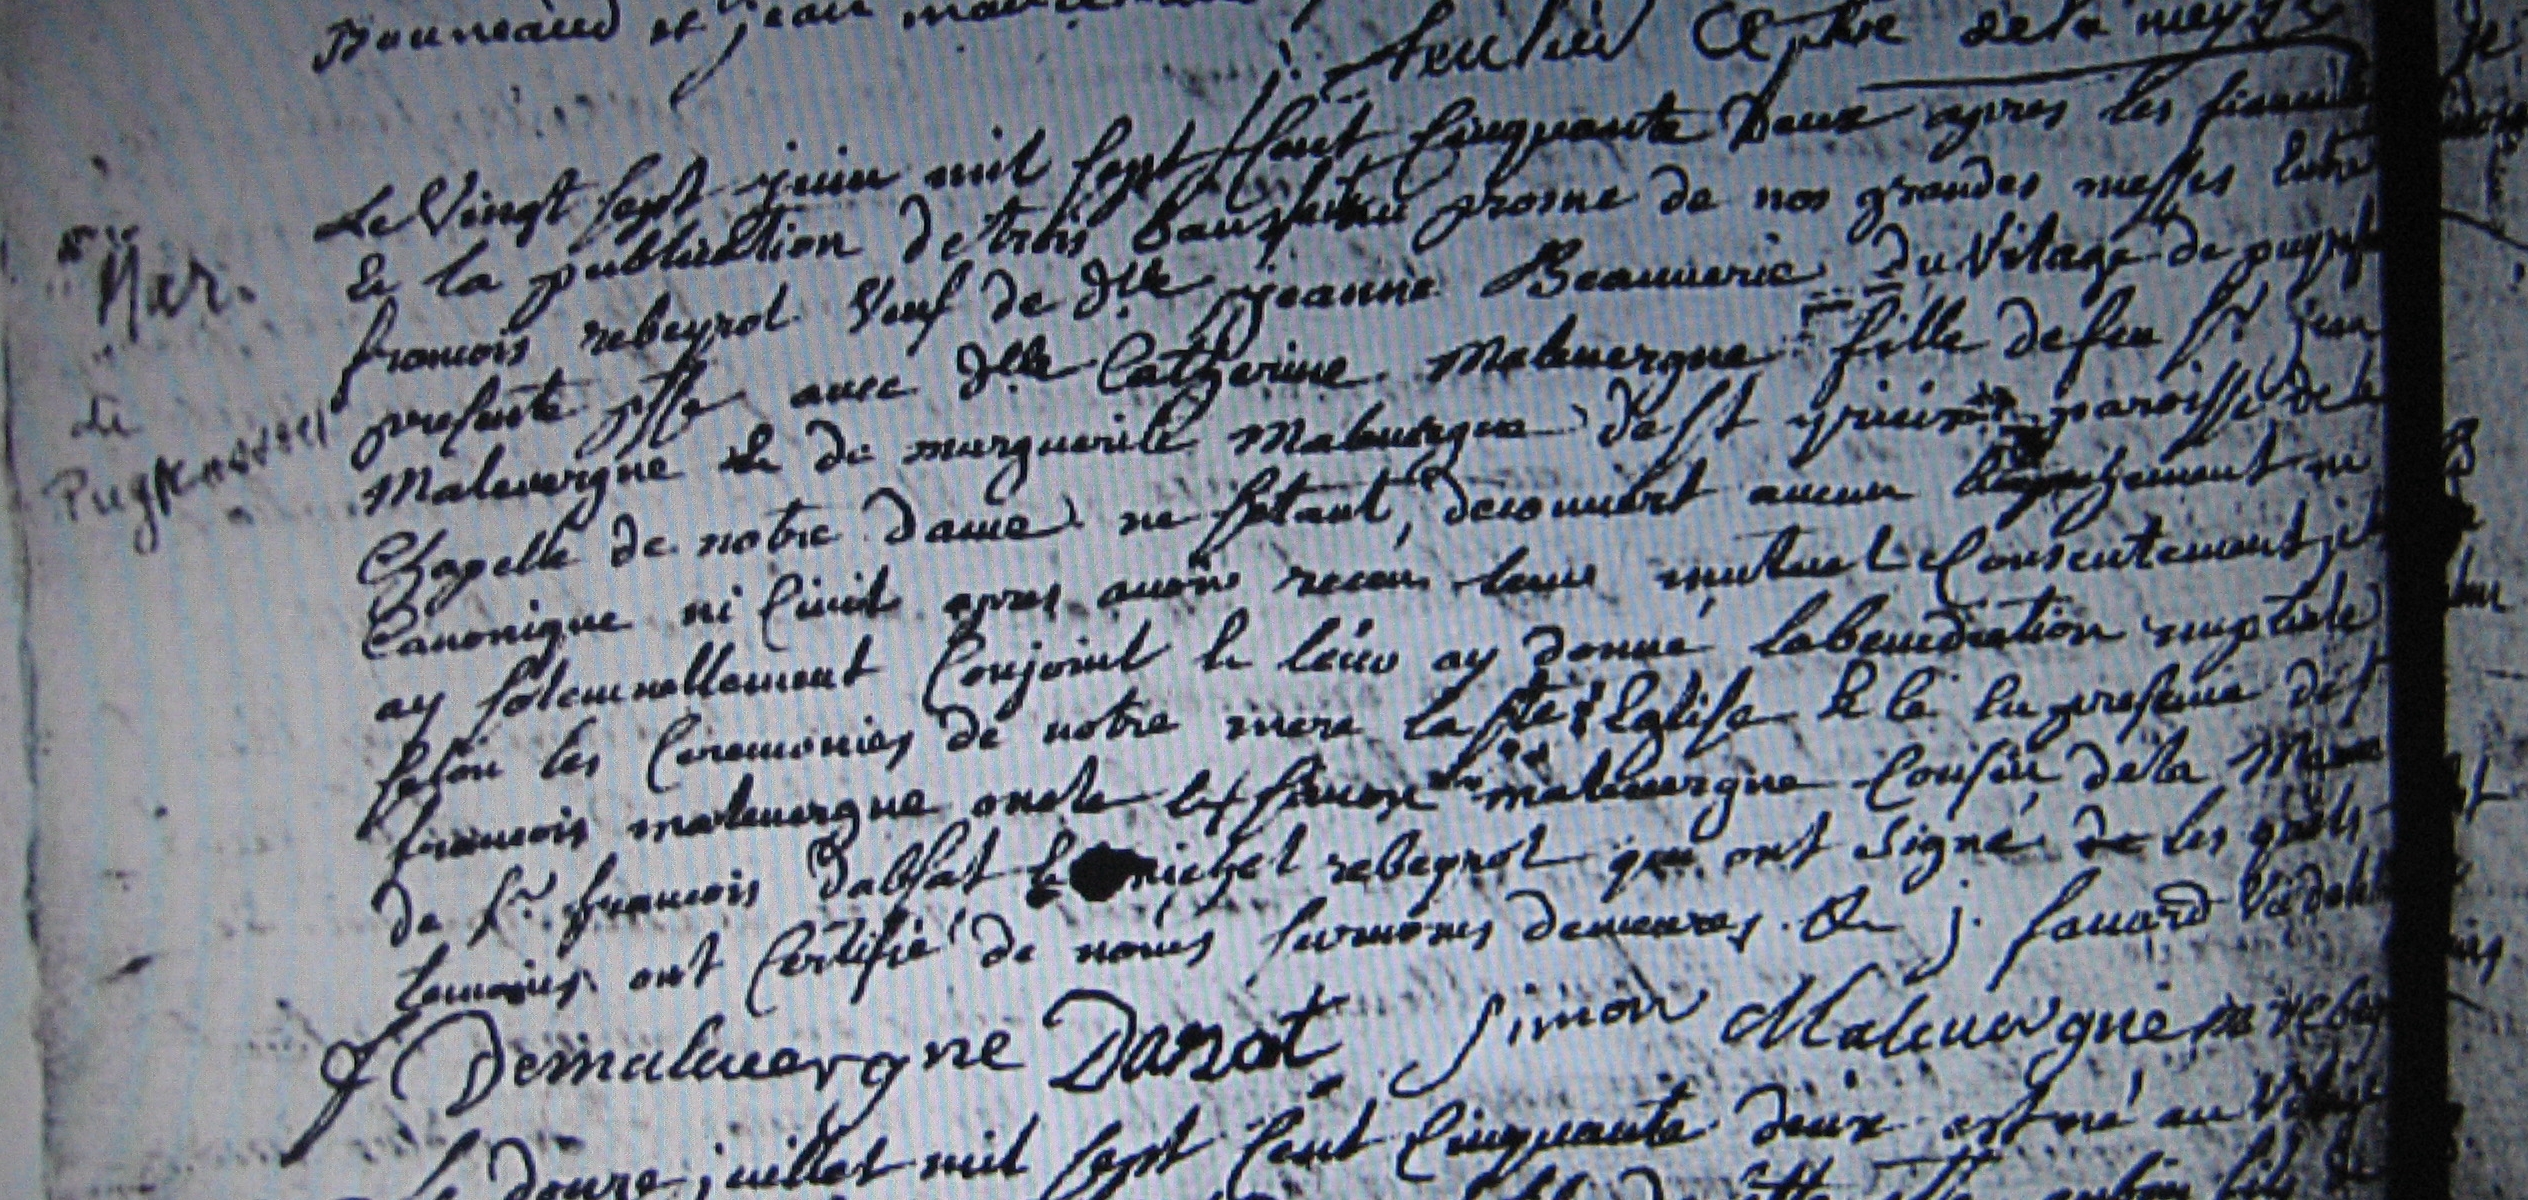 et jean
Le Vingt sept juin mil sept Cent Cinquante Deux apres les
Et la publication de trois bans prone de nos grandes messes Entre
Mar.
francois rebeyrol Veuf de dlle jeanne Beauuerie du Vilage de
presente psse auec dlle Catherine Maleuergne fille de feu Sr jean
de
Maleuergne Et de marguerite Maleuergne de St paroisse de la
Chapelle de notre dame ne setant decouuert aucun ni
Canonique ni Ciuil apres auoir receu leur mutuel Consentement
ay solemnellement Conjoint Et leur ay donné la benediction nuptiale
selon les Ceremonies de notre mere la ste Eglise Et ce En presence de
francois maleuergne oncle Et simon maleuergne Cousin de la
de Sr francois Et michel rebeyrol qui ont signé
temoins ont Certifié de noms surnoms demeures. Et j. fauard
Demaleuergne Simon Maleuergne
douze juillet mil sept Cent Cinquante deux est né au